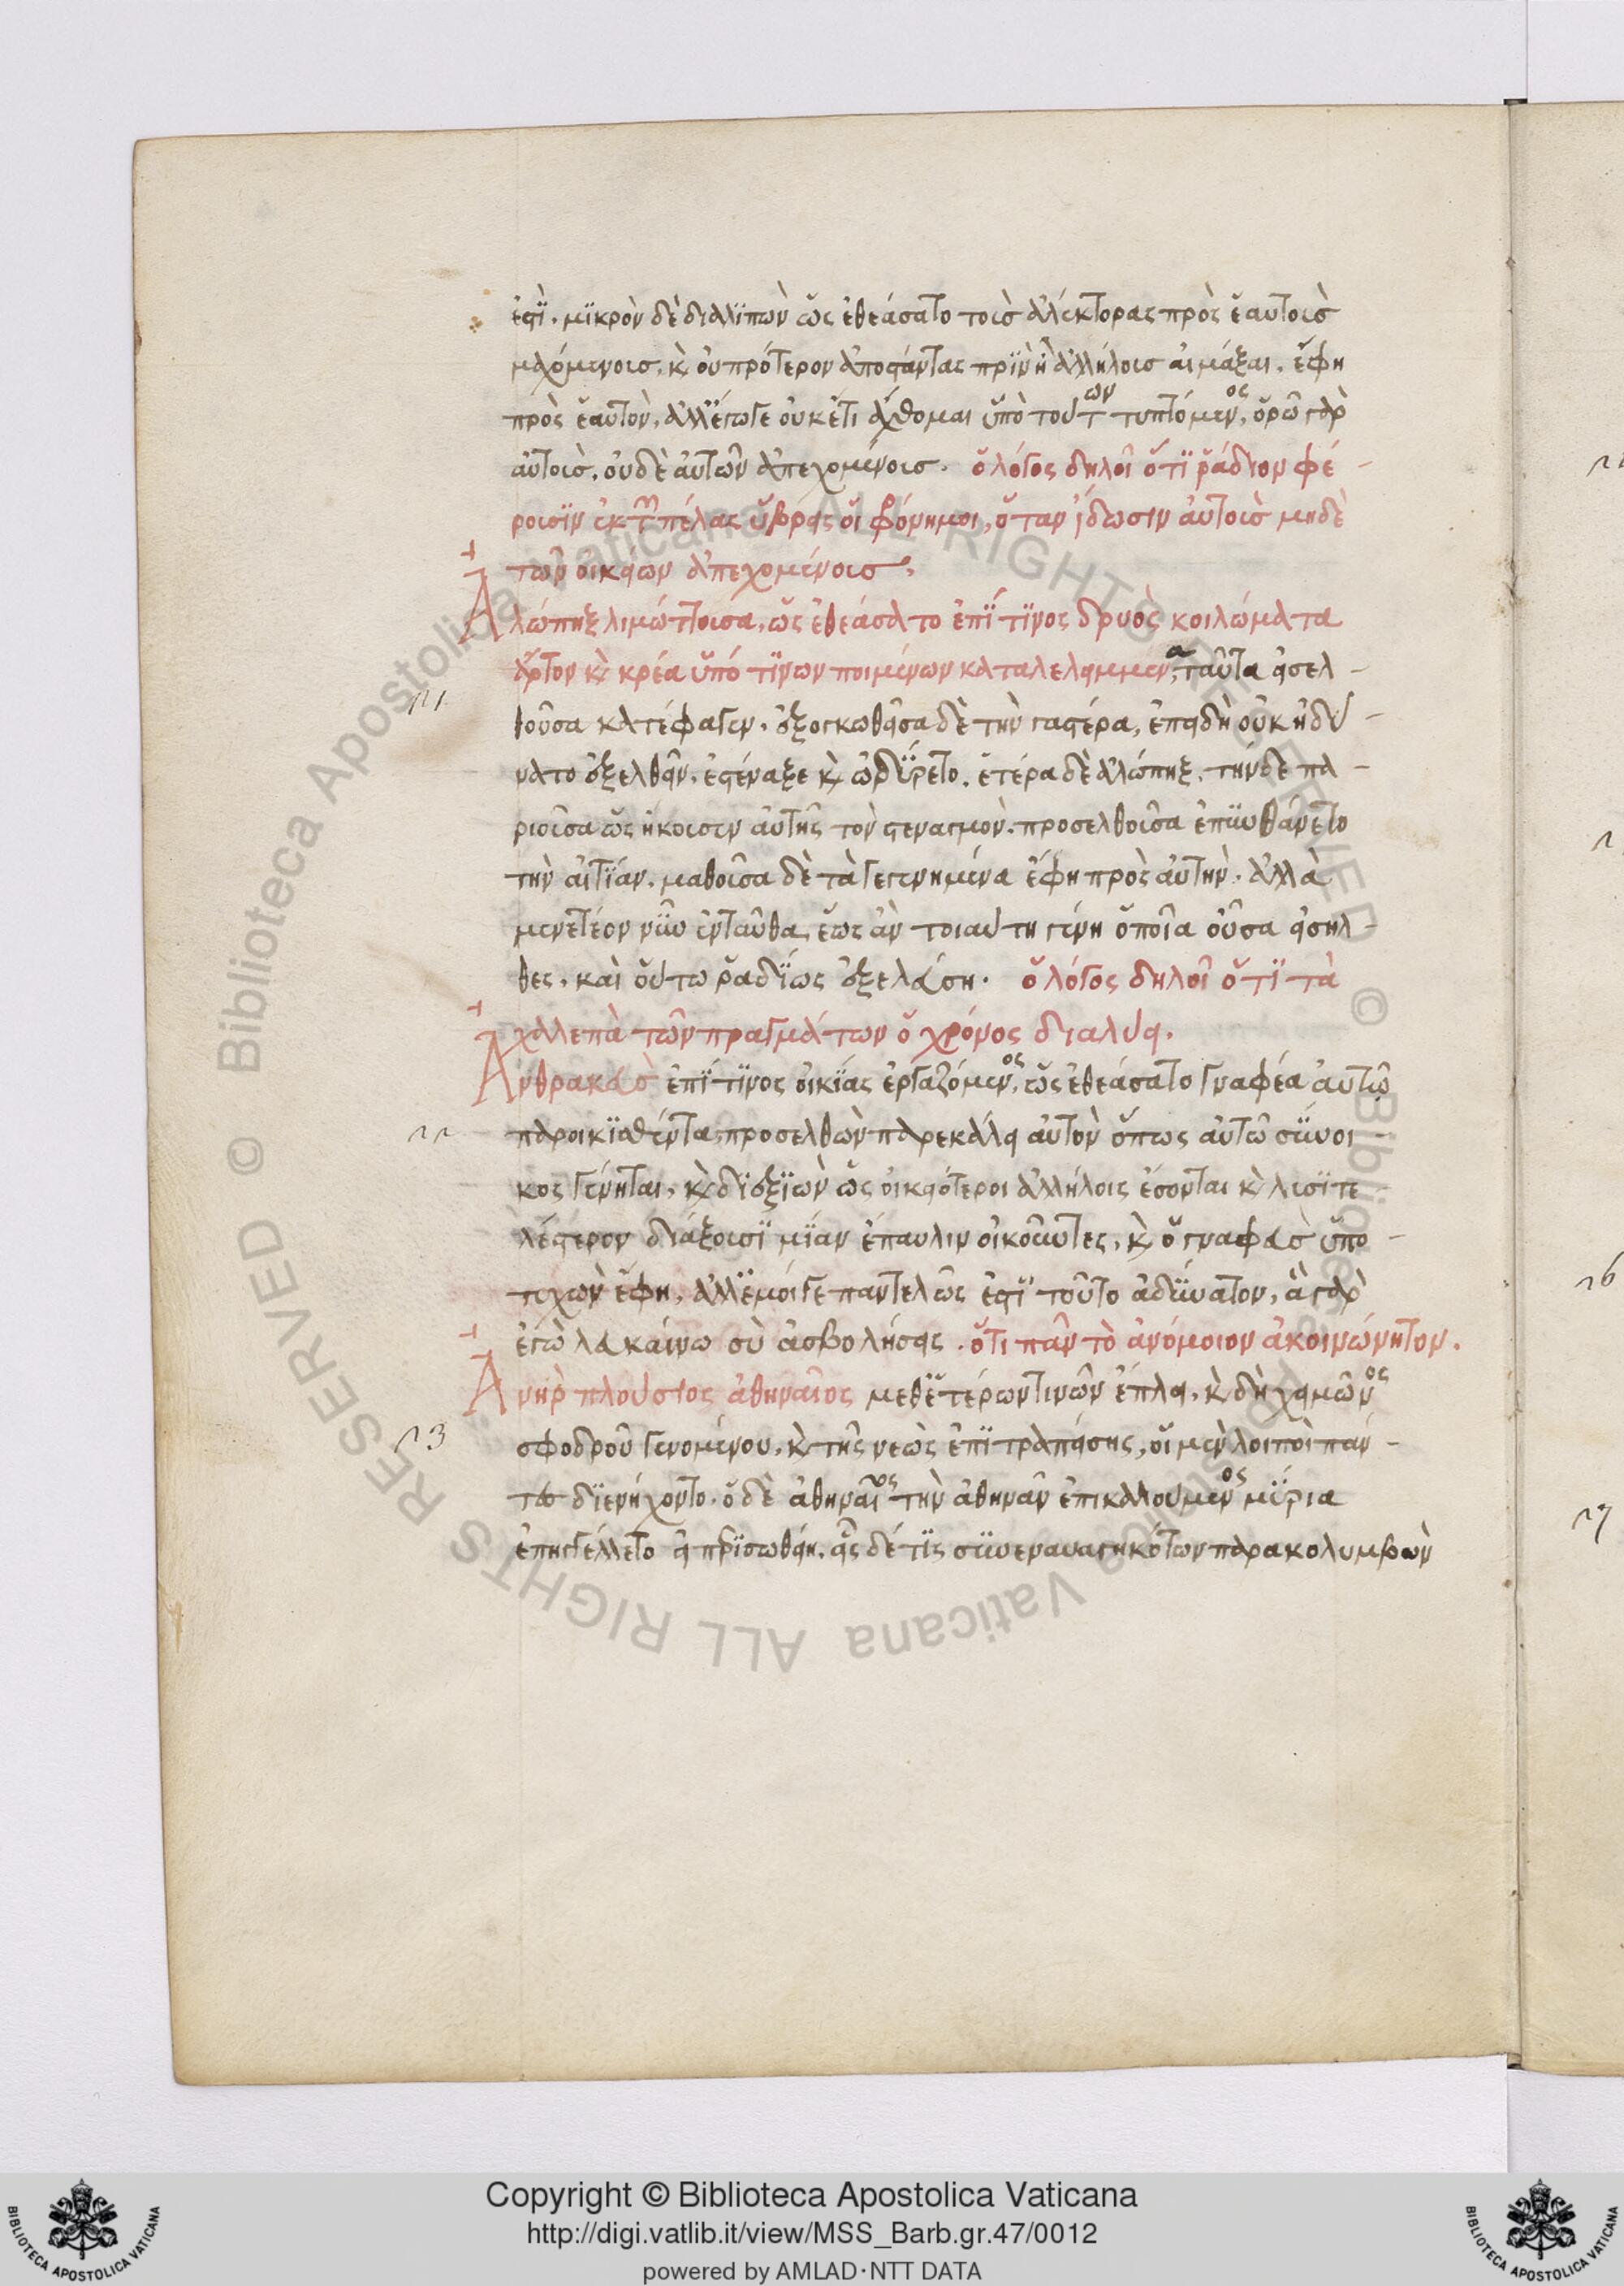 ἐστί. μικρὸν δὲ διαλιπὼν ὡς ἐθεάσατο τοὺς ἀλέκτορας πρὸς ἑαυτοὺς
μαχόμενους, κ οὐ πρότερον ἀποστάντας πρὶν ἢ ἀλλήλους αἱμάξαι. ἔφη
πρὸς ἑαυτὸν, ἀλλ' ἔγωγε οὐκέτι ἄχθομαι ὑπὸ τούτων τυπτόμενος, ὁρῶ γὰρ
αὐτοὺς, οὐδὲ αὐτῶν ἀπεχομένους. ὁ λόγος δηλοῖ ὅτι ῥάδιον φέ-
ρουσιν ἐκ τ πέλας ὕβρεις οἱ φρόνιμοι, ὅταν ἴδωσιν αὐτοὺς μηδὲ
τῶν οἰκείων ἀπεχομένους.
Ἀλώπηξ λιμώττουσα, ὡς ἐθεάσατο ἐπί τινος δρυὸς κοιλώματα
ἄρτον κ κρέα ὑπό τινων ποιμένων καταλελειμμένα, ταῦτα εἰσελ-
21
θοῦσα κατέφαγεν. ἐξογκωθεῖσα δὲ τὴν γαστέρα, ἐπειδὴ οὐκ ἠδύ-
νατο ἐξελθεῖν, ἐστέναξε κ ὠδύρετο. ἑτέρα δὲ ἀλώπηξ, τήνδε πα-
ριοῦσα ὡς ἤκουσεν αὐτῆς τὸν στεναγμὸν. προσελθοῦσα ἐπυνθάνετο
τὴν αἰτίαν. μαθοῦσα δὲ τὰ γεγενημένα ἔφη πρὸς αὐτὴν. ἀλλὰ
μενετέον νῦν ἐνταῦθα, ἕως ἂν τοιαύτη γένη ὁποῖα οὖσα εἰσηλ-
θες. καὶ οὕτω ῥαδίως ἐξελεύση. ὁ λόγος δηλοῖ ὅτι τὰ
χαλεπὰ τῶν πραγμάτων ὁ χρόνος διαλύει.
Ἀνθρακεὺς ἐπί τινος οἰκίας ἐργαζόμενος, ὡς ἐθεάσατο γναφέα αὐτῷ
22
παροικισθέντα, προσελθὼν παρεκάλει αὐτὸν ὅπως αὐτῶ σύνοι-
κος γένηται, κ διεξιὼν ὡς οἰκειότεροι ἀλλήλοις ἔσονται κ λυσιτε
λέστερον διάξουσι μίαν ἔπαυλιν οἰκοῦντες, κ ὁ γναφεὺς ὑπο-
τυχὼν ἔφη, ἀλλ' ἐμοίγε παντελῶς ἐστὶ τοῦτο ἀδύνατον, ἃ γὰρ
ἐγὼ λευκαίνω σὺ ἀσβολήσεις. ὅτι πᾶν τὸ ἀνόμοιον ἀκοινώνητον.
Ἀνὴρ πλούσιος ἀθηναῖος μεθ' ἑτέρων τινῶν ἔπλει, κ δὴ χειμῶνος
23
σφοδροῦ γενομένου, κ τῆς νεὼς ἐπιτραπείσης, οἱ μὲν λοιποὶ πάν-
τες διενήχοντο. ὁ δὲ ἀθηναῖος τὴν ἀθηνᾶν ἐπικαλούμενος μύρια
ἐπηγέλλετο εἰ περισωθείη. εἷς δέ τις συνεναυαγηκότων παρακολυμβῶν
26
27
© Biblioteca Apostolica Vaticana ALL RIGHTS RESERVED
Copyright © Biblioteca Apostolica Vaticana
http://digi.vatlib.it/view/MSS_Barb.gr.47/0012
powered by AMLAD·NTT DATA
BIBLIOTECA APOSTOLICA VATICANA
BIBLIOTECA APOSTOLICA VATICANA